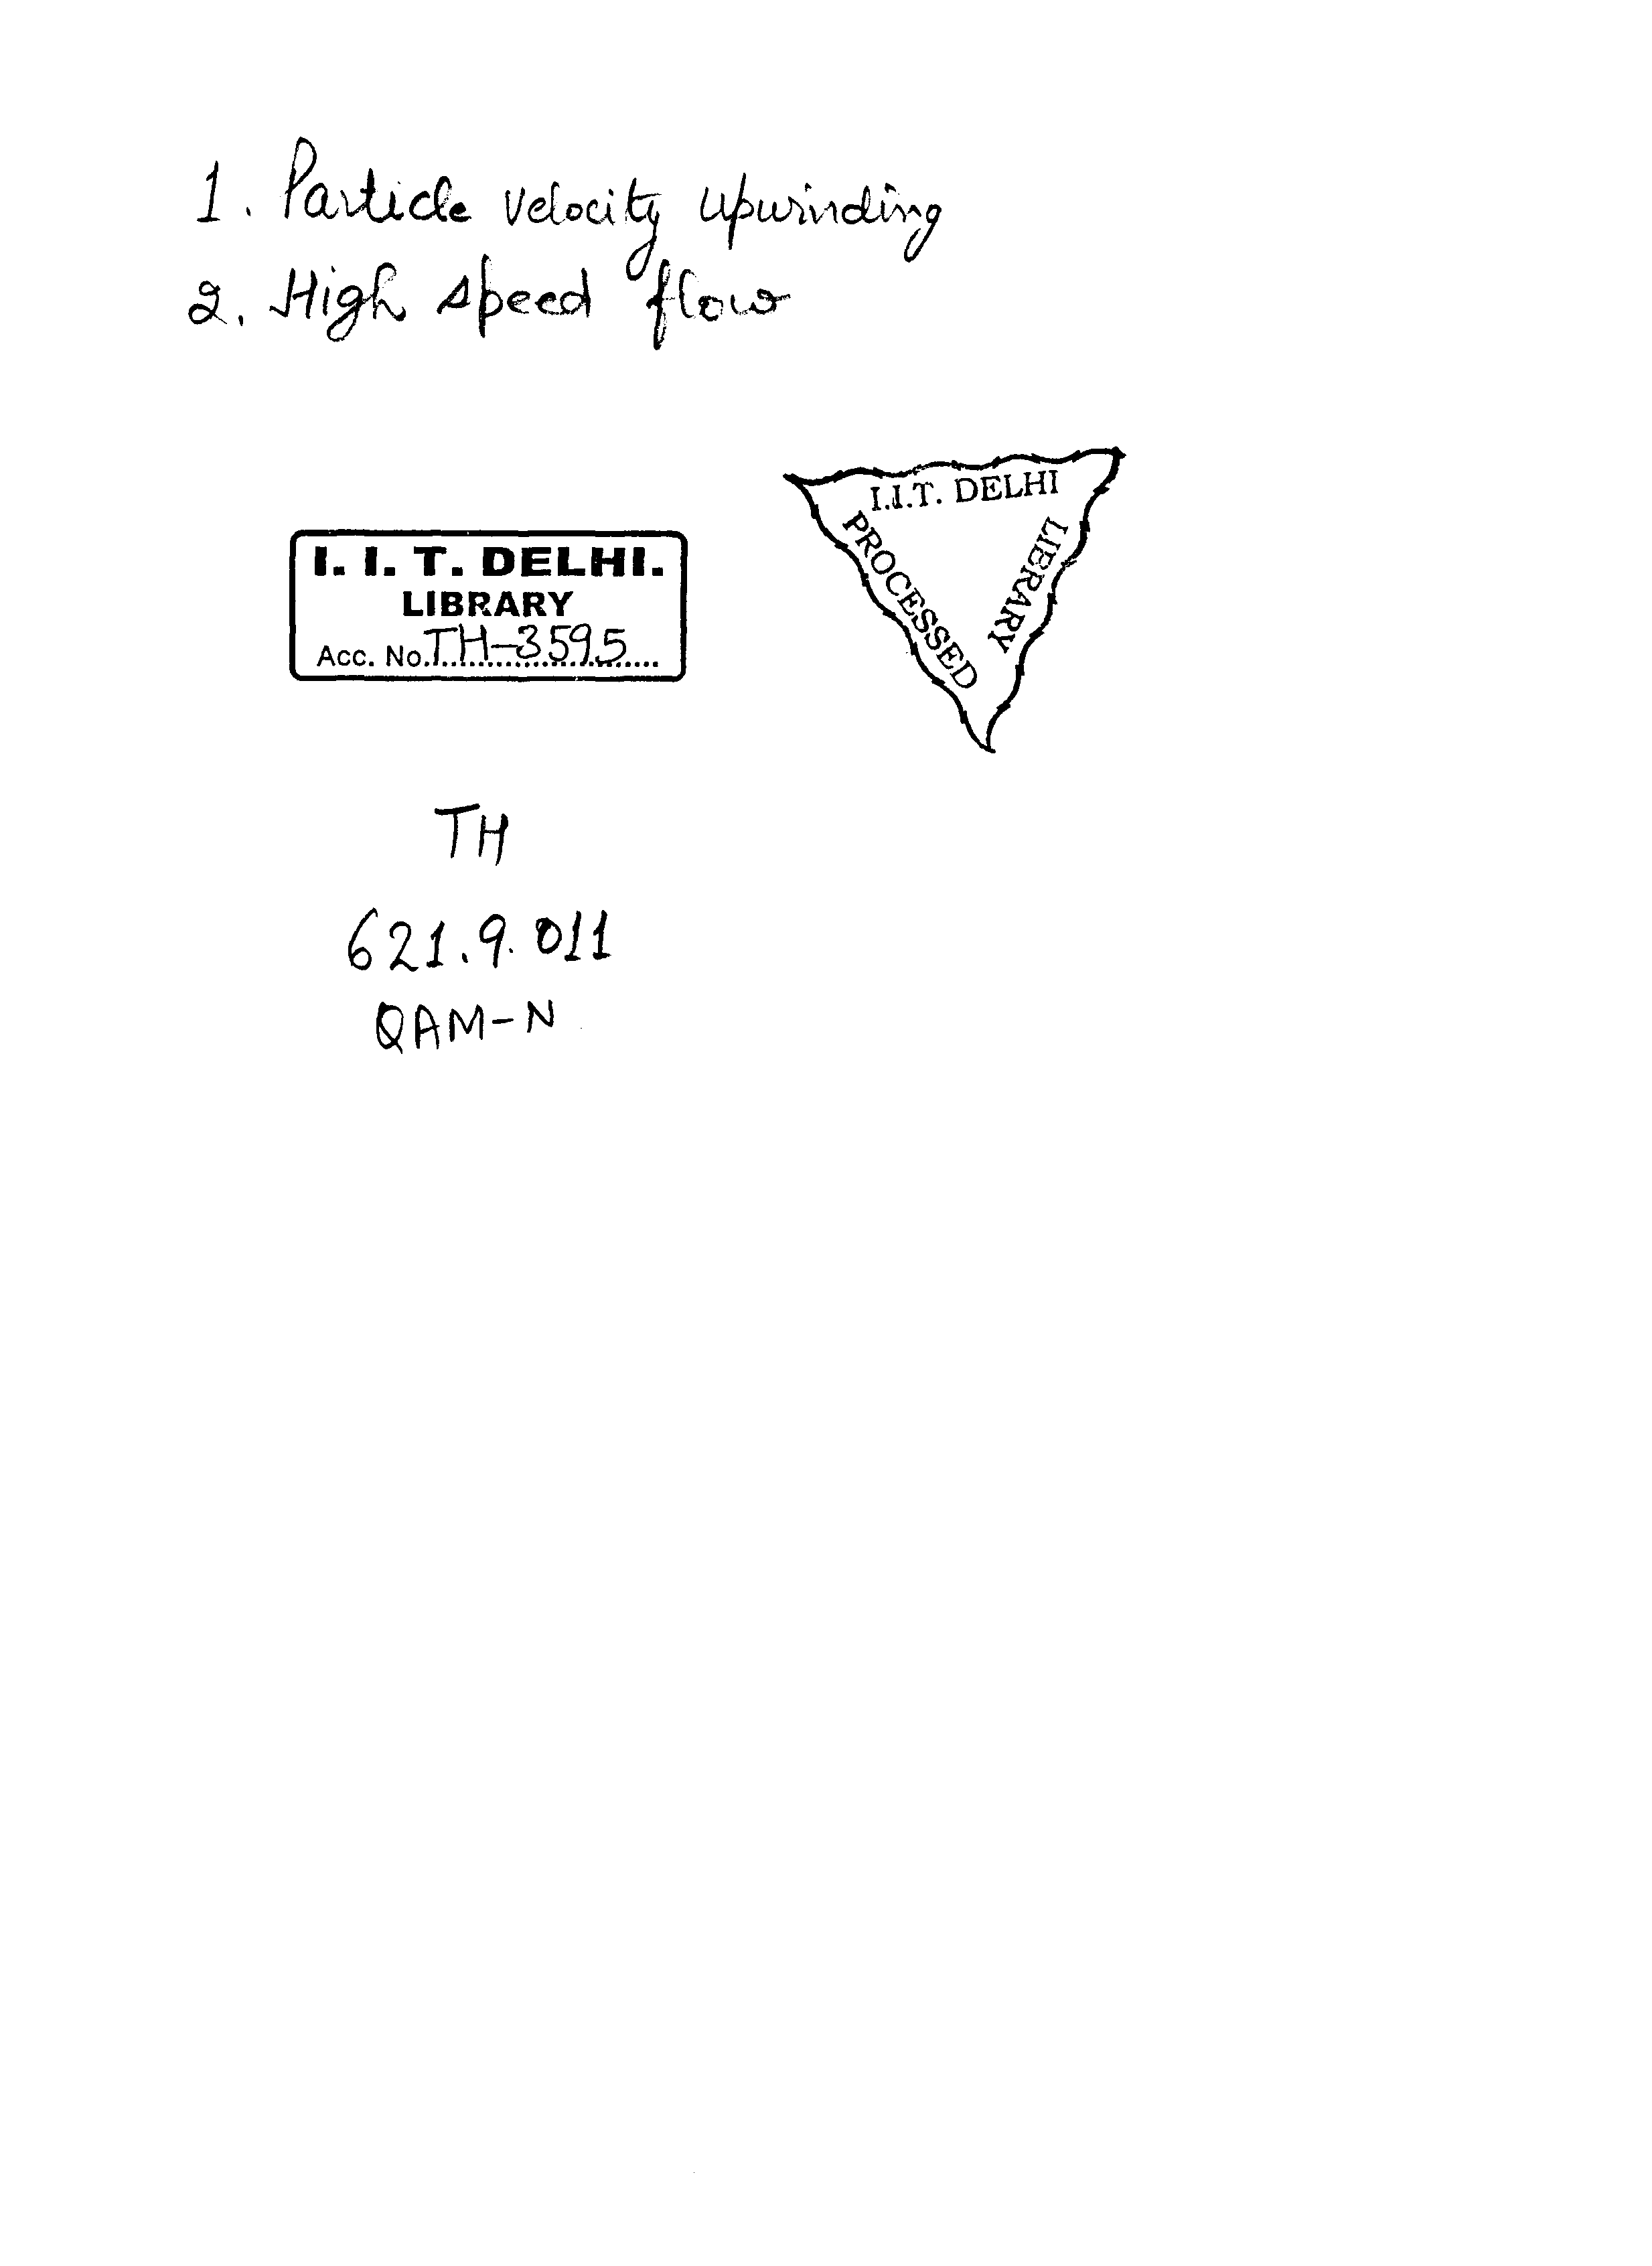 1. Particle velocity upwinding
2. High speed flow
I. I. T. DELHI.
LIBRARY
Acc. No. TH-3595
I.I.T. DELHI
LIBRARY
PROCESSED
TH
621.9.011
QAM-N